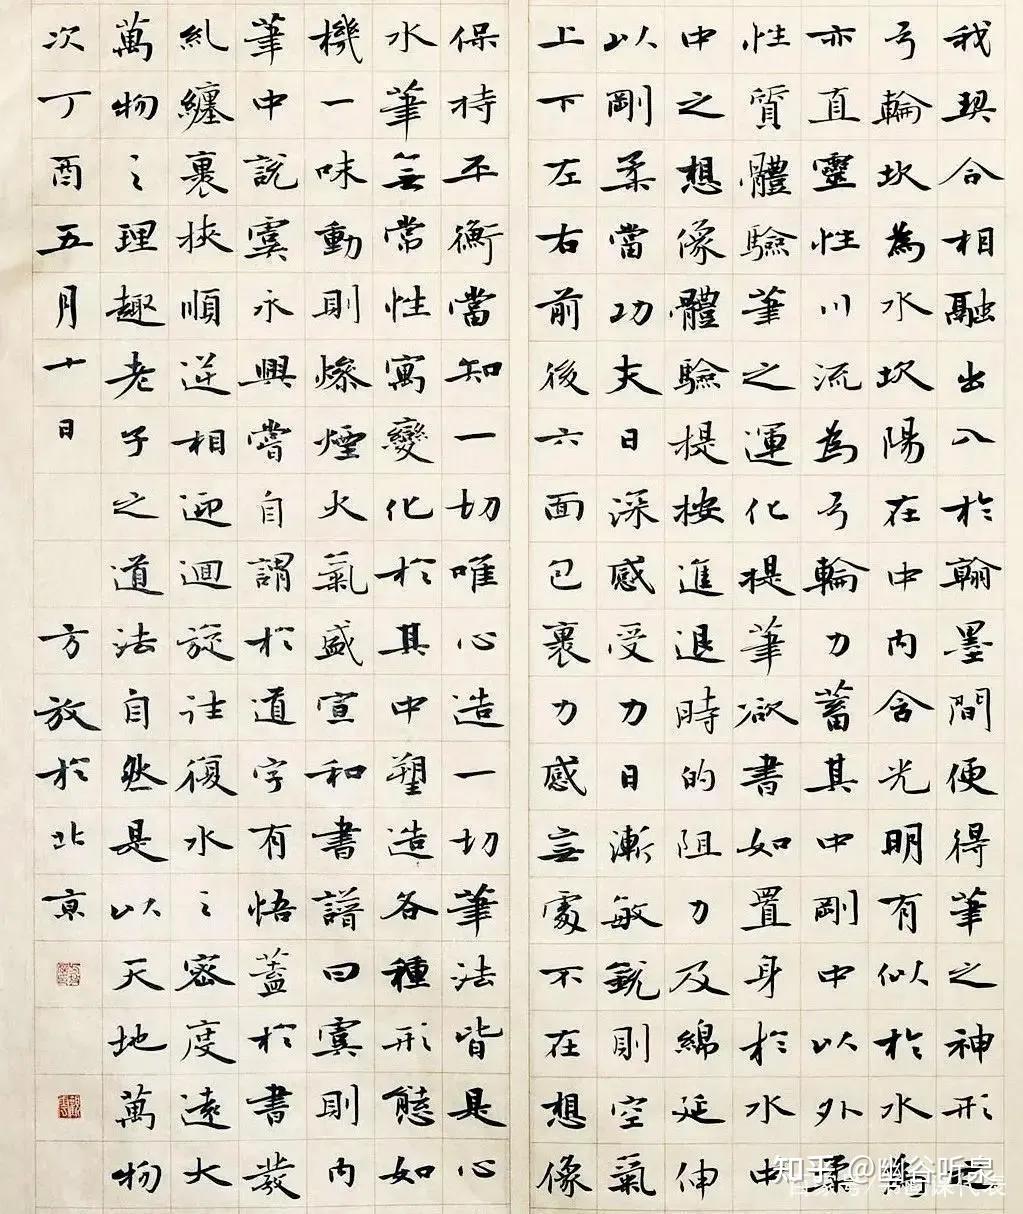 我契合相融出入於翰墨間便得筆之神形
弓輪坎為水坎陽在中內含光明有似於水
亦直靈性川流為弓輪力蓄其中剛中以外柔
性質體驗筆之運化提筆欲書如置身於水中
中之想像體驗提按進退時的阻力及綿延伸
以剛柔當功夫日深感受力日漸敏銳則空氣
上下左右前後六面包裹力感無處不在想像
保持平衡當知一切唯心造一切筆法皆是心
水筆無常性寓變化於其中塑造各種形態如
機一味動則燥煙火氣盛宣和書譜曰虞則內
筆中說虞永興嘗自謂於道字有悟蓋於書發
糺纏裹挾順逆相迎迴旋往復水之密度遠大
萬物之理趣老子之道法自然是以天地萬物
次丁酉五月十日
方放於北京
知乎 @幽谷听泉
百家号/书画课代表